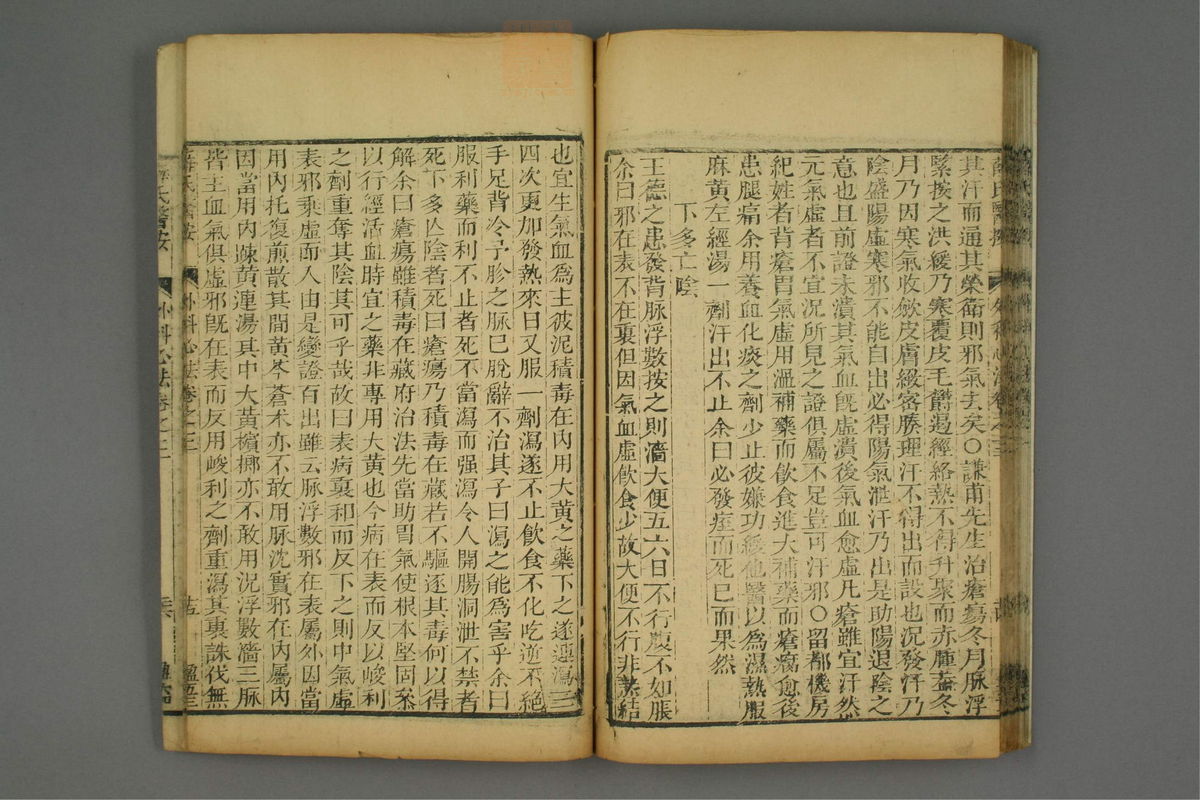 其汗而通其榮衛則邪氣去矣○謙甫先生治瘡瘍冬月脉浮
緊按之洪緩乃寒覆皮毛欝遏經絡熱不得升聚而赤腫蓋冬
月乃因寒氣收歛皮膚緻密腠理汗不得出而設也况發汗乃
陰盛陽虛寒邪不能自出必得陽氣泄汗乃出是助陽退陰之
意也且前證未潰其氣血旣虛潰後氣血愈虛凡瘡雖宜汗然
元氣虛者不宜况所見之證俱屬不足豈可汗邪○留都機房
紀姓者背瘡胃氣虛用溫補藥而飮食進大補藥而瘡腐愈後
患腿痛余用養血化痰之劑少止彼嫌功緩他醫以爲濕熱服
麻黃左經湯一劑汗出不止余曰必發痙而死已而果然
下多亡陰
王德之患發背脉浮數按之則濇大便五六日不行腹不加脹
余曰邪在表不在裏但因氣血虛飮食少故大便不行非熱結
也宜生氣血爲主彼泥積毒在內用大黃之藥下之遂連瀉三
四次更加發熱來日又服一劑瀉遂不止飮食不化吃逆不絕
手足背冷予胗之脉已脫辭不治其子曰瀉之能爲害乎余曰
服利藥而利不止者死不當瀉而强瀉令人開腸洞泄不禁者
死下多亡陰者死曰瘡瘍乃積毒在藏若不驅逐其毒何以得
解余曰瘡瘍雖積毒在藏府治法先當助胃氣使根本堅固叅
以行經活血時宜之藥非專用大黃也今病在表而反以峻利
之劑重奪其陰其可乎哉故曰表病裏和而反下之則中氣虛
表邪乘虛而入由是變證百出雖云脉浮數邪在表屬外因當
用內托復煎散其間黃芩蒼朮亦不敢用脉沈實邪在內屬內
因當用內踈黃連湯其中大黃檳榔亦不敢用况浮數濇三脉
皆主血氣俱虛邪旣在表而反用峻利之劑重瀉其裏誅伐無
薛氏醫按 外科心法卷之三